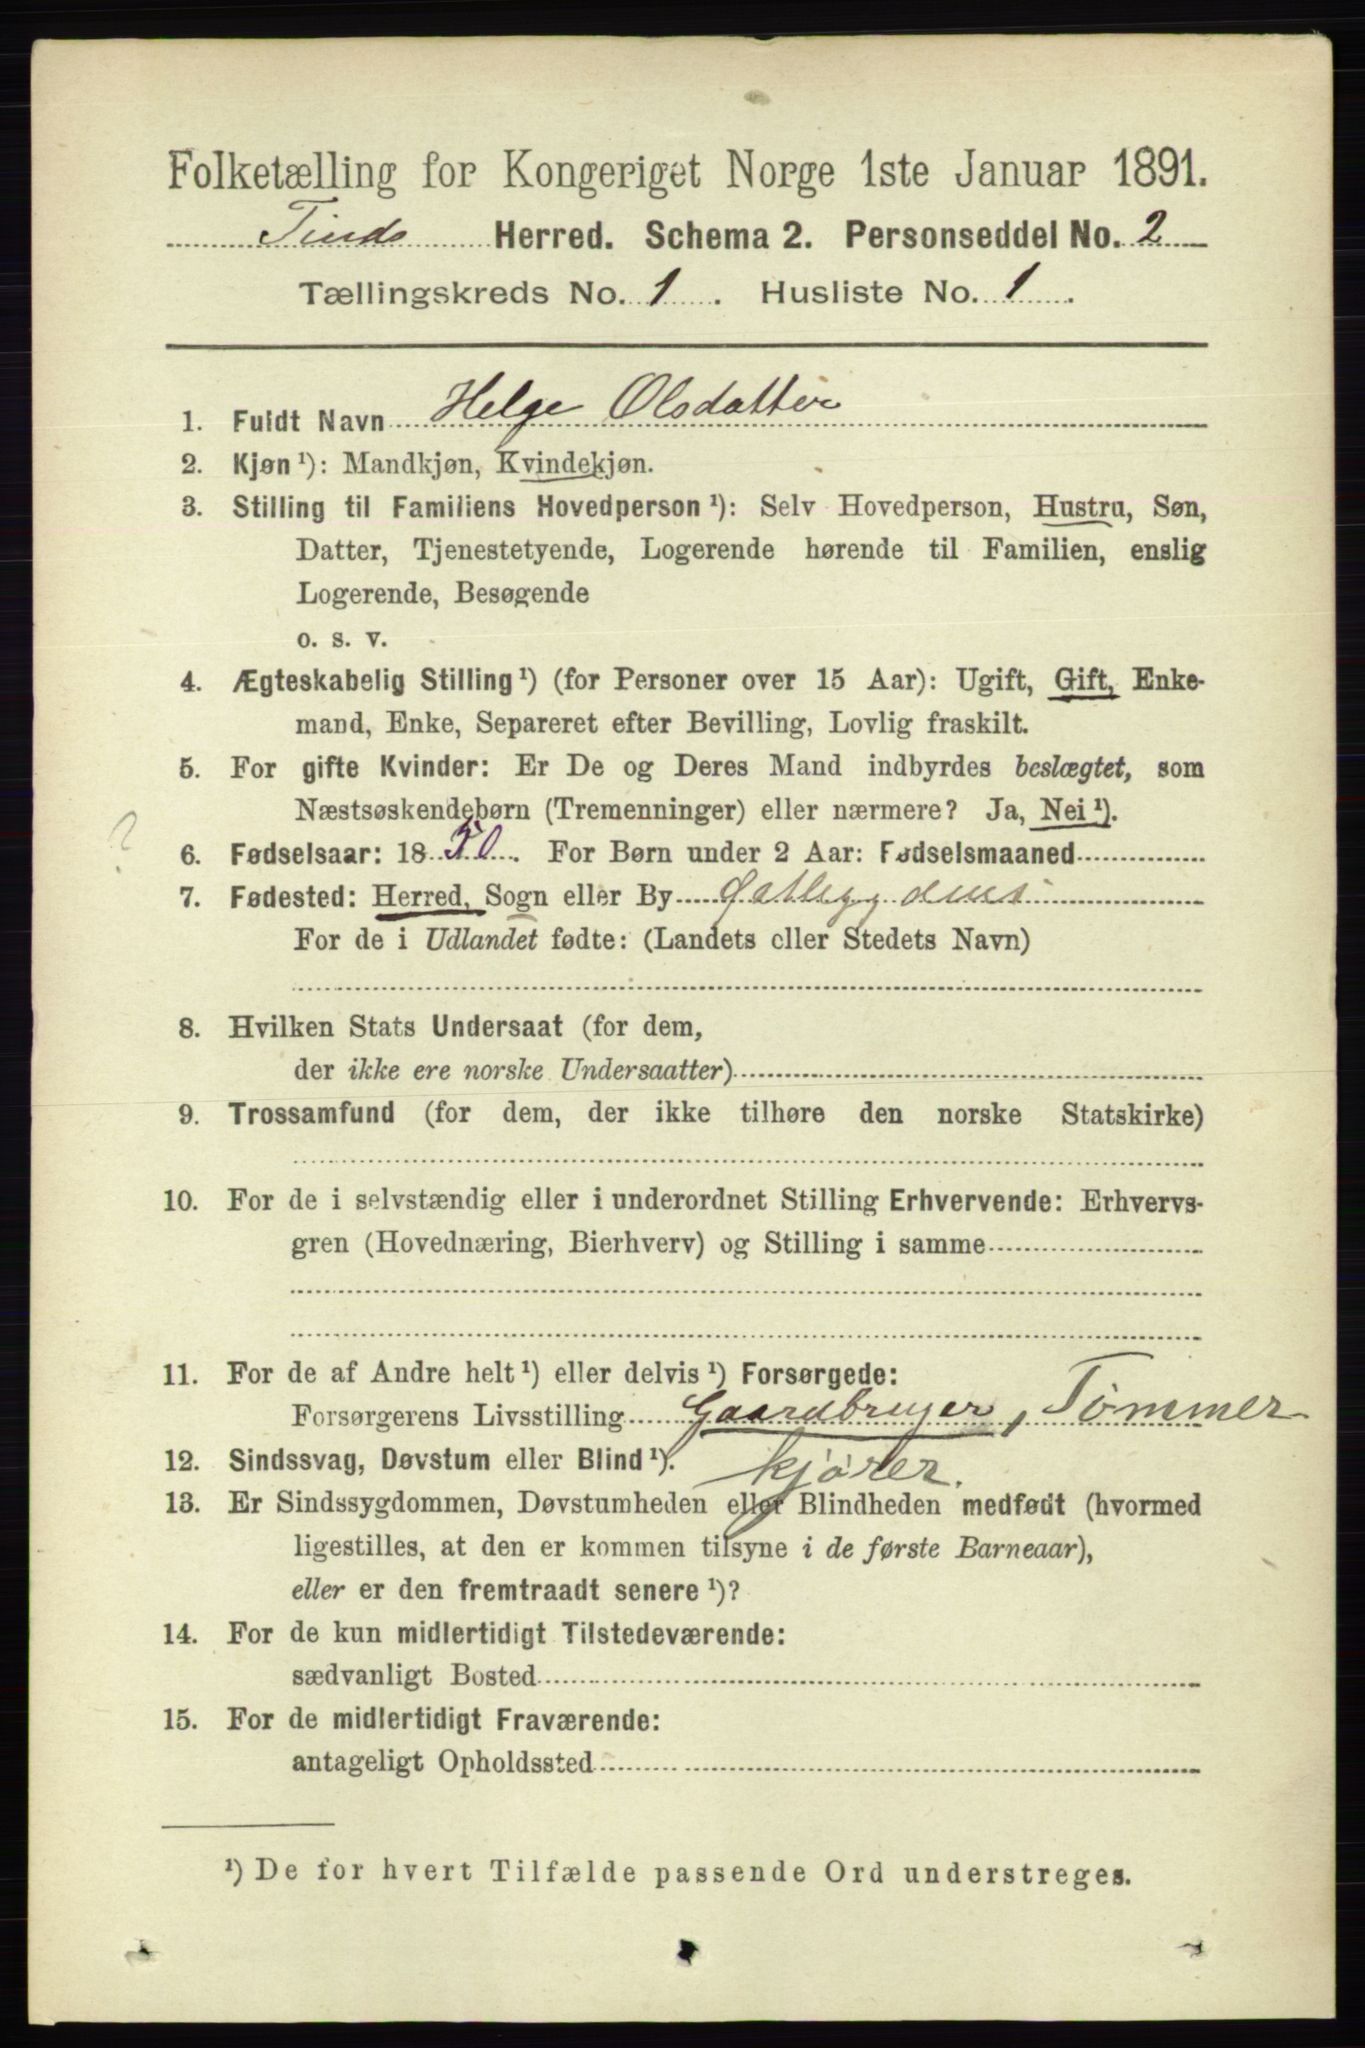 Folketælling for Kongeriget Norge 1ste Januar 1891.
Tinds Herred. Schema 2. Personseddel No. 2
Tællingskreds No. 1. Husliste No. 1.
1. Fuldt Navn Helge Olsdatter
2. Kjøn ¹): Mandkjøn, Kvindekjøn.
3. Stilling til Familiens Hovedperson ¹): Selv Hovedperson, Hustru, Søn,
Datter, Tjenestetyende, Logerende hørende til Familien, enslig
Logerende, Besøgende
o. s. v.
4. Ægteskabelig Stilling ¹) (for Personer over 15 Aar): Ugift, Gift, Enke-
mand, Enke, Separeret efter Bevilling, Lovlig fraskilt.
5. For gifte Kvinder: Er De og Deres Mand indbyrdes beslægtet, som
Næstsøskendebørn (Tremenninger) eller nærmere? Ja, Nei ¹).
?
6. Fødselsaar: 1850. For Børn under 2 Aar: Fødselsmaaned
7. Fødested: Herred, Sogn eller By
For de i Udlandet fødte: (Landets eller Stedets Navn)
8. Hvilken Stats Undersaat (for dem,
der ikke ere norske Undersaatter)
9. Trossamfund (for dem, der ikke tilhøre den norske Statskirke)
10. For de i selvstændig eller i underordnet Stilling Erhvervende: Erhvervs-
gren (Hovednæring, Bierhverv) og Stilling i samme
11. For de af Andre helt ¹) eller delvis ¹) Forsørgede:
Forsørgerens Livsstilling Gaardbruger, Tömmer
12. Sindssvag, Døvstum eller Blind ¹). kjörer.
13. Er Sindssygdommen, Døvstumheden eller Blindheden medfødt (hvormed
ligestilles, at den er kommen tilsyne i de første Barneaar),
eller er den fremtraadt senere ¹)?
14. For de kun midlertidigt Tilstedeværende:
sædvanligt Bosted
15. For de midlertidigt Fraværende:
antageligt Opholdssted
¹) De for hvert Tilfælde passende Ord understreges.